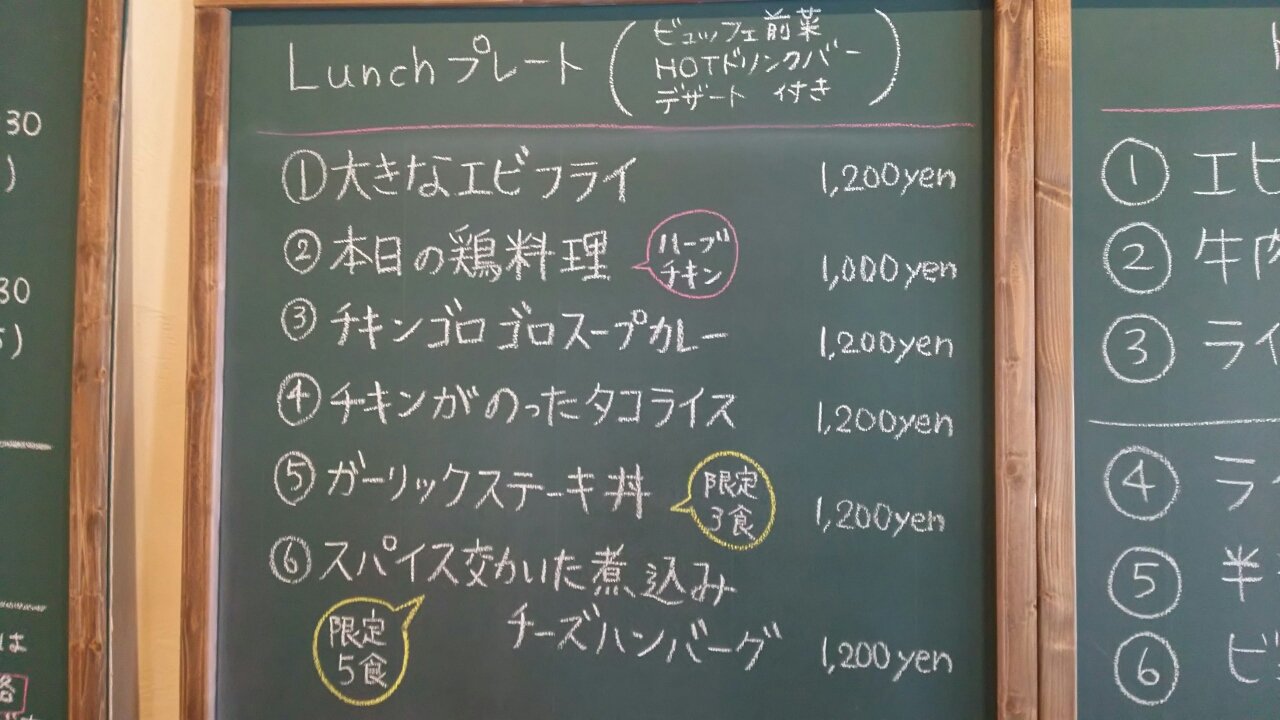 Lunchプレート(ビュッフェ前菜
HOTドリンクバー
デザート 付き)
①大きなエビフライ 1,200yen
②本日の鶏料理 ハーブ
チキン 1,000yen
③チキンゴロゴロスープカレー 1,200yen
④チキンがのったタコライス 1,200yen
⑤ガーリックステーキ丼 限定
3食 1,200yen
⑥スパイス効いた煮込み
チーズハンバーグ 1,200yen
限定
5食
30
)
30
5)
は
① エビ
② 牛肉
③ ライ
④ ラ
⑤ 半
⑥ ビ